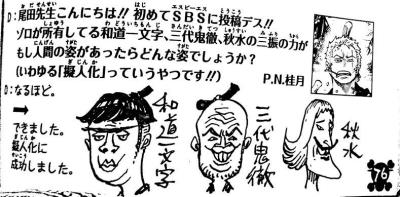 D:尾田先生こんにちは!!初めてSBSに投稿デス!!
ゾロが所有してる和道一文字、三代鬼徹、秋水の三振の力が
もし人間の姿があったらどんな姿でしょうか?
(いわゆる「擬人化」っていうやつです!!)
P.N.桂月
O:なるほど。
➡
できました。
擬人化に
成功しました。
和道一文字
三代鬼徹
秋水
76